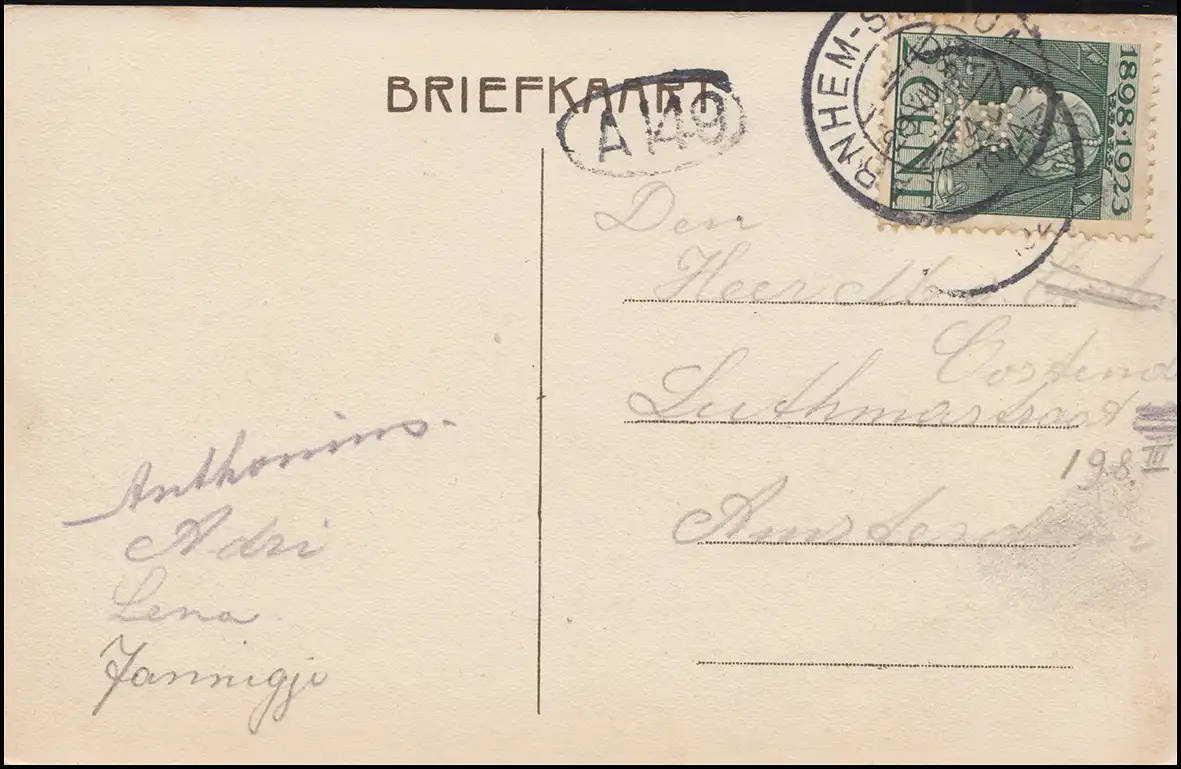 BRIEFKAART
A 149
1898·1923
CENT
Den
Heer
Oostend
Luthmastraat
198 III
Amsterdam
Anthonius
Adri
Lena
Jannigje